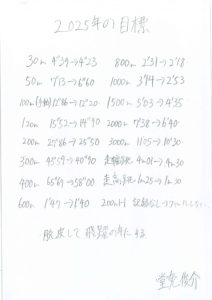 2025年の目標
30m 4"39→4"23 800m 2'31→2'18
50m 7"13→6"60 1000m 3'14→2'53
100m 12"86→12"20 1500m 5'03→4'35
120m 15"52→14"90 2000m 7'38→6'40
200m 27"86→25"50 3000m 11'25→10'30
300m 45"59→40"90 走幅跳 4m01→4m30
400m 65"69→58"00 走高跳 1m25→1m30
600m 1'47→1'40
脱皮して飛躍の年にする